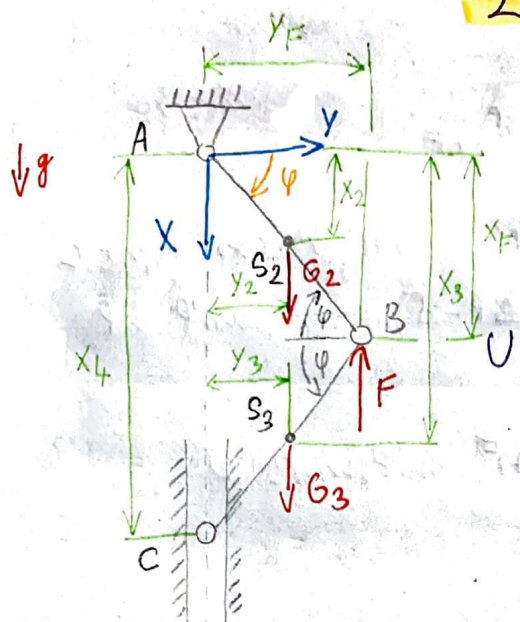 2
Y_F
A
Y
g
φ
X_2
X
X_F
S_2
G_2
X_3
Y_2
φ
B
U
X_4
Y_3
φ
F
S_3
G_3
C